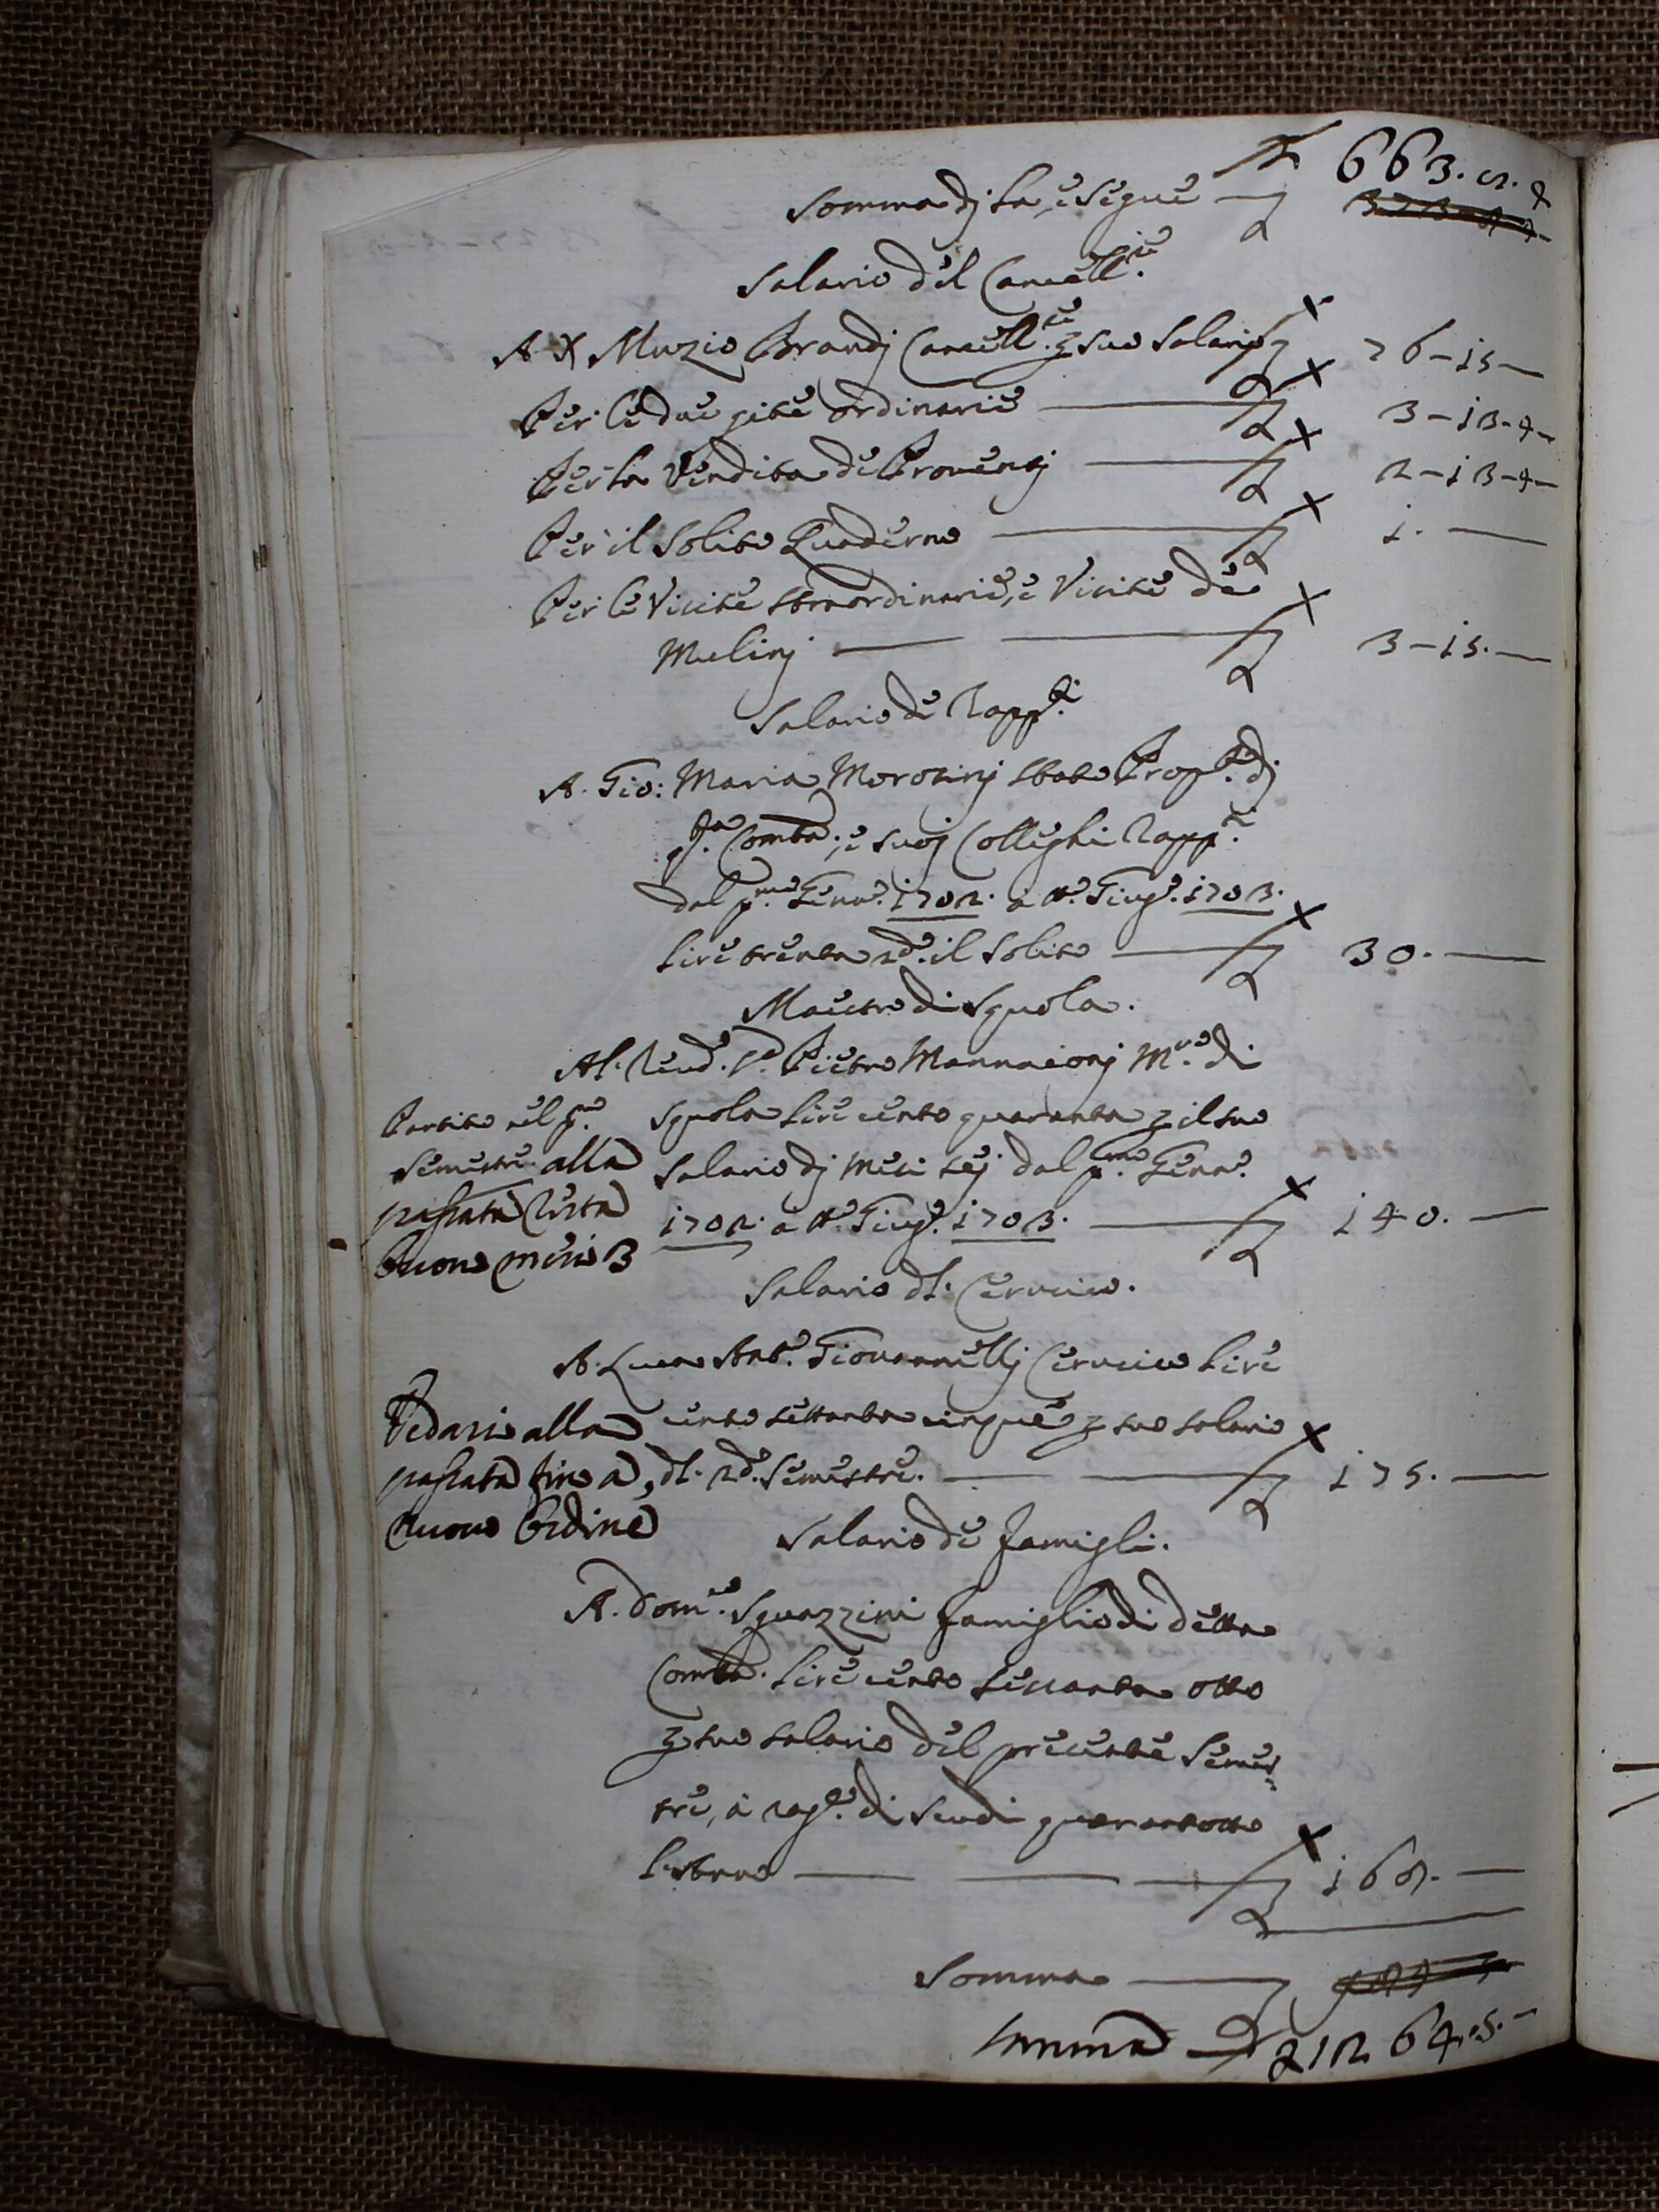 663. 5. 8
Somma di là, e segue £
Salario del Cancell.re
A Muzio Brandj Cancell.re p suo salario £ 76-15-
Per le due gite ordinarie £ 3-13-4-
Per la Vendita de Provenij £ 2-13-4-
Per il solito Quaderno £ 1. -
Per le Visite straordinarie, e Visite de
Mulinj £ 3-15.-
Salario de Rapp.ti
A. Gio: Maria Morosinj stato Prop.to dj
q.ta Comtà; e suoj Colleghi Rapp.ti
dal p.mo Genn.o 1702. a tt.o Giug.o 1703.
lire trenta 2d.o il solito £ 30. -
Maestro di Squola.
Al. Reud.o P.e Pietro Mannaionj M.ro di
Squola lire cento quaranta p il suo
salario dj mesi sej dal p.mo Genn.o
1702. a tt.o Giug.o 1703. £ 140. -
Partito nel p.mo
semestre alla
passata Lista
buono mesi 3
Salario dl. Cerusico.
A. Luca Ant.o Giovannellj Cerusico lire
cento settanta cinque p suo salario
dl. 2d.o Semestre. £ 175. -
Vedasi alla
passata fino a,
nuovo Ordine
Salario de famigli.
A. Dom.co Squazzini famiglio di detta
Comtà. lire cento sessanta otto
p suo salario del presente Semes=
tre, à rag.e di scudi quarantotto
l'anno £ 168. -
Somma £
Somma £ 1264. 5. -